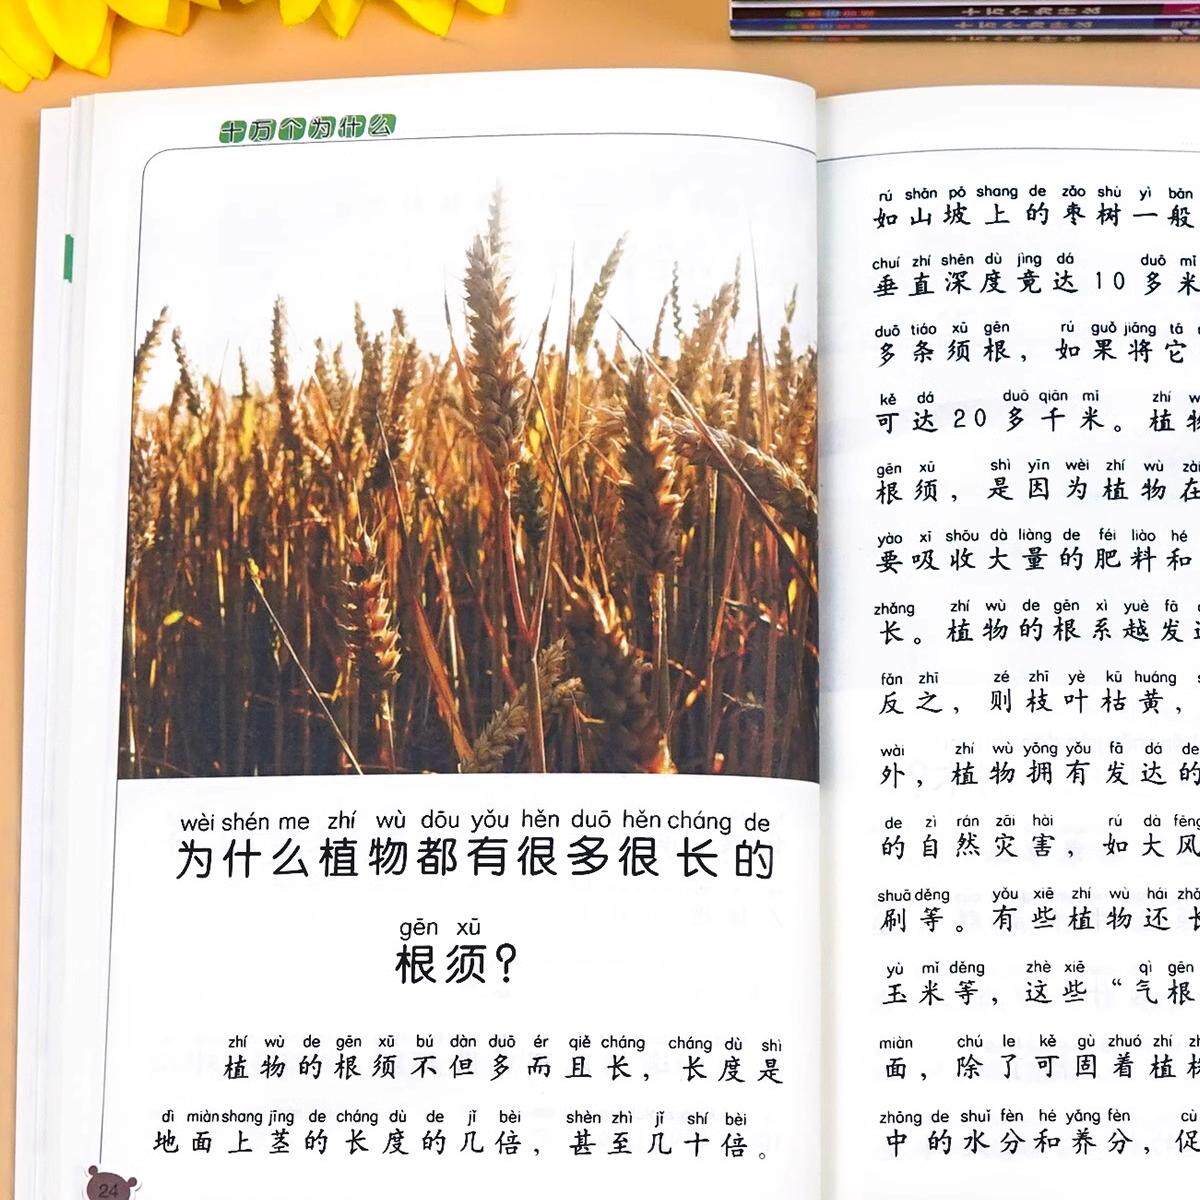 十万个为什么
十万个为什么
十万个为什么
十万个为什么
wèi shén me zhí wù dōu yǒu hěn duō hěn cháng de
为什么植物都有很多很长的
gēn xū
根须？
zhí wù de gēn xū bú dàn duō ér qiě cháng cháng dù shì
植物的根须不但多而且长，长度是
dì miàn shang jīng de cháng dù de jǐ bèi shèn zhì jǐ shí bèi
地面上茎的长度的几倍，甚至几十倍。
24
rú shān pō shang de zǎo shù yì bān
如山坡上的枣树一般
chuí zhí shēn dù jìng dá duō mǐ
垂直深度竟达10多米
duō tiáo xū gēn rú guǒ jiāng tā
多条须根，如果将它
kě dá duō qiān mǐ zhí
可达20多千米。植物
gēn xū shì yīn wèi zhí wù zài
根须，是因为植物在
yào xī shōu dà liàng de féi liào hé
要吸收大量的肥料和
zhǎng zhí wù de gēn xì yuè fā
长。植物的根系越发
fǎn zhī zé zhī yè kū huáng
反之，则枝叶枯黄，
wài zhí wù yōng yǒu fā dá de
外，植物拥有发达的
de zì rán zāi hài rú dà fēng
的自然灾害，如大风
shuā děng yǒu xiē zhí wù hái
刷等。有些植物还长
yù mǐ děng zhè xiē qì gēn
玉米等，这些“气根
miàn chú le kě gù zhuó zhí
面，除了可固着植株
zhōng de shuǐ fèn hé yǎng fèn cù
中的水分和养分，促